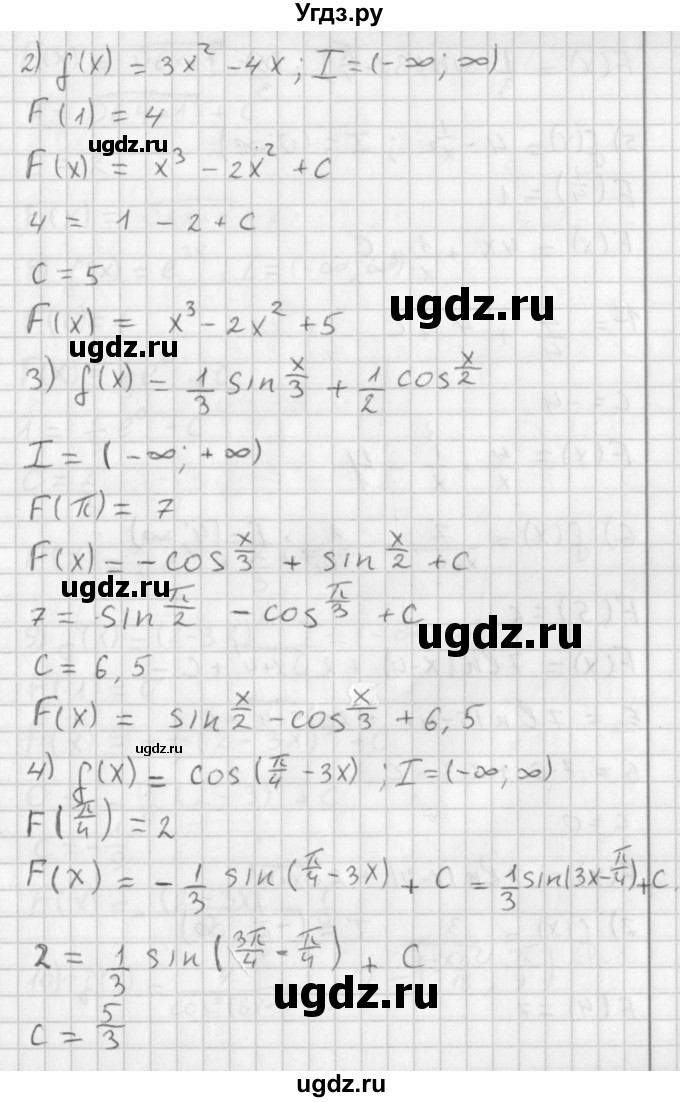 Угдз.ру
2) f(x) = 3x² - 4x; I = (-∞; ∞)
F(1) = 4
ugdz.ru
F(x) = x³ - 2x² + C
4 = 1 - 2 + C
C = 5
ugdz.ru
F(x) = x³ - 2x² + 5
ugdz.ru
3) f(x) = 1/3 sin x/3 + 1/2 cos x/2
I = (-∞; +∞)
F(π) = 7
F(x) = -cos x/3 + sin x/2 + C
ugdz.ru
7 = sin π/2 - cos π/3 + C
ugdz.ru
C = 6,5
F(x) = sin x/2 - cos x/3 + 6,5
ugdz.ru
4) f(x) = cos(π/4 - 3x); I = (-∞; ∞)
F(π/4) = 2
F(x) = -1/3 sin(π/4 - 3x) + C = 1/3 sin(3x - π/4) + C
2 = 1/3 sin(3π/4 - π/4) + C
ugdz.ru
C = 5/3
ugdz.ru